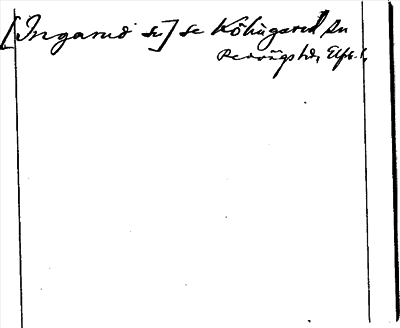 [Ingarud se] se Kölingared sn
Redvägs hd, Elfsb. l.